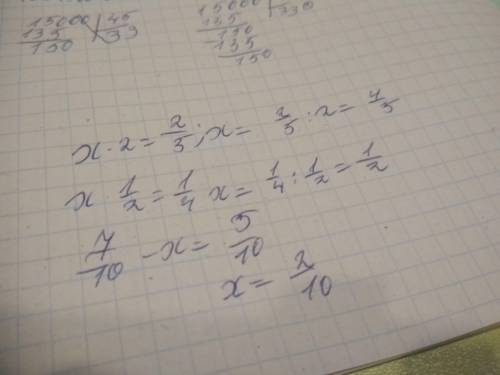 15000 | 45
135 | 33
150
15000
135 | 330
150
135
150
x · 2 = 2/5; x = 2/5 : 2 = 1/5
x · 1/2 = 1/4 x = 1/4 : 1/2 = 1/2
7/10 - x = 5/10
x = 2/10